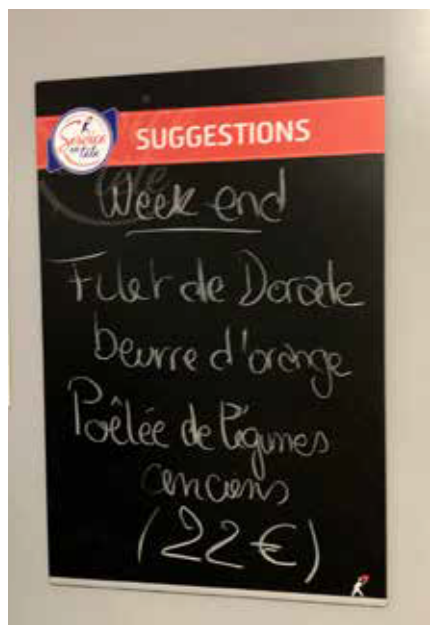 Service
en tête
SUGGESTIONS
Week end
Filet de Dorade
beurre d'orange
Poêlée de légumes
anciens
(22€)